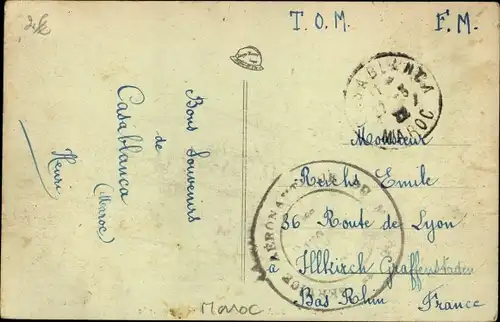 T.O.M. F.M.
CASABLANCA
MAROC
Bons Souvenirs
de
Casablanca
(Maroc)
Henri
Monsieur
Reichs Emile
36 Route de Lyon
à Illkirch Graffenstaden
Bas Rhin France
Maroc